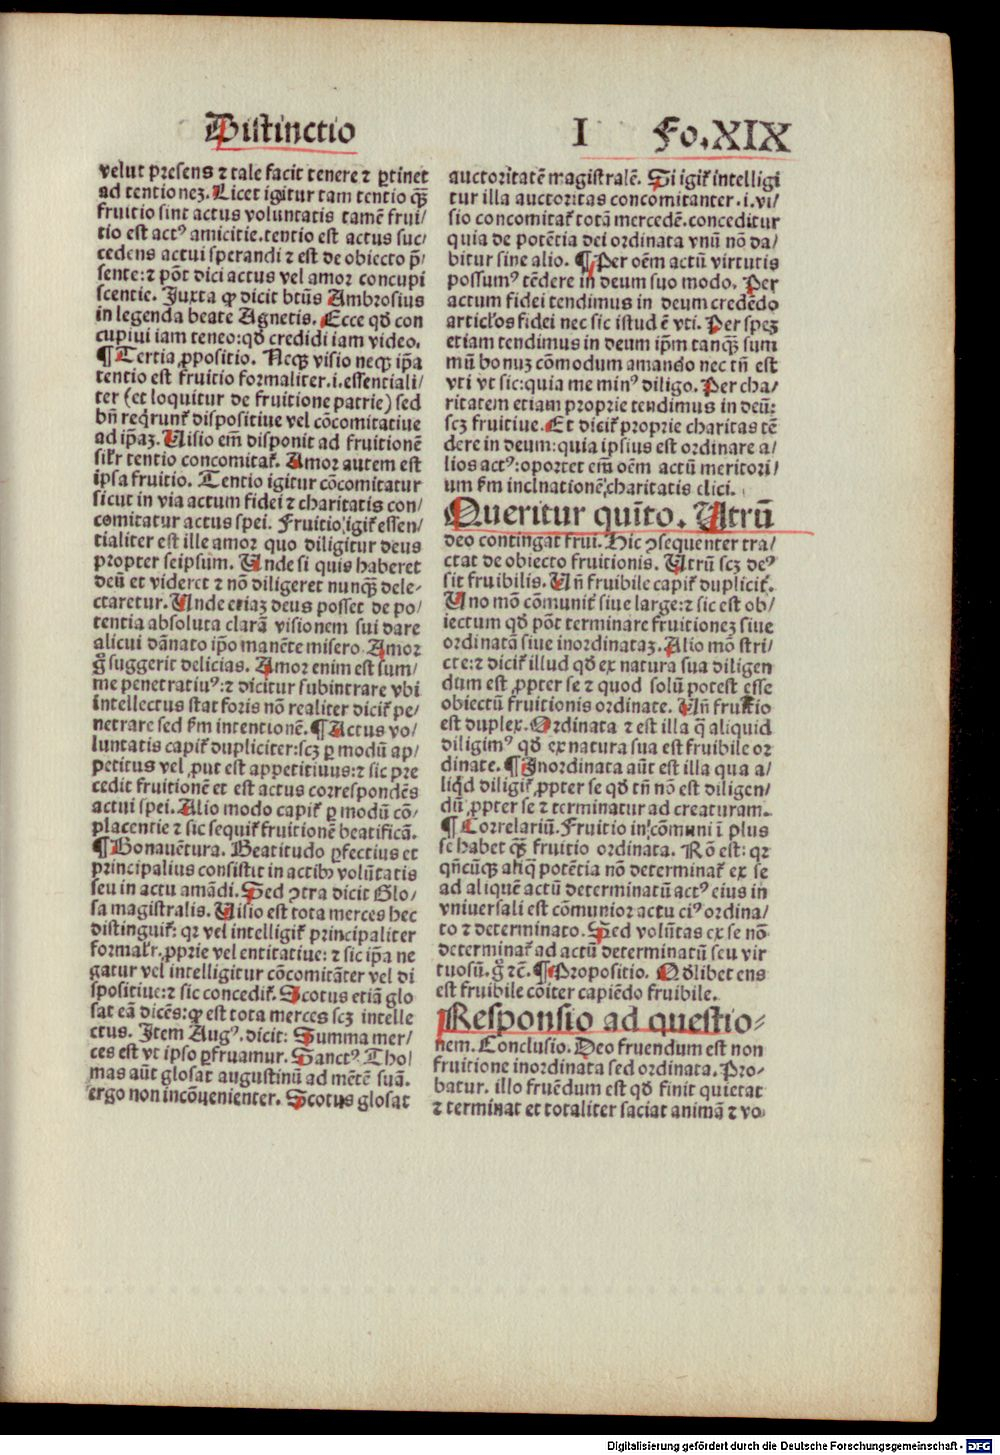 Distinctio I Fo.XIX
velut presens ⁊ tale facit tenere ⁊ ꝑtinet
ad tentionez. Licet igitur tam tentio qꝫ̄
fruitio sint actus voluntatis tamē frui/
tio est actꝰ amicitie.tentio est actus suc/
cedens actui sperandi ⁊ est de obiecto p̄/
sente:⁊ pōt dici actus vel amor concupi
scentie. Juxta ꝙ dicit btūs Ambrosius
in legenda beate Agnetis. Ecce qd̄ con
cupiui iam teneo:qd̄ credidi iam video.
¶ Tertia ꝓpositio. Neqꝫ visio neqꝫ ip̄a
tentio est fruitio formaliter.i.essentiali/
ter (et loquitur de fruitione patrie) sed
bn̄ reqͥrunt᷑ dispositiue vel cōcomitatiue
ad ip̄az. Uisio em̄ disponit ad fruitionē
sil̄r tentio concomitat᷑. Amor autem est
ipsa fruitio. Tentio igitur cōcomitatur
sicut in via actum fidei ⁊ charitatis con/
comitatur actus spei. Fruitio igit᷑ essen/
tialiter est ille amor quo diligitur deus
propter seipsum. Unde si quis haberet
deū et videret ⁊ nō diligeret nunqꝫ̄ dele/
ctaretur. Unde etiaz deus posset de po/
tentia absoluta clarā visionem sui dare
alicui dānato ip̄o manēte misero. Amor
g̊ suggerit delicias. Amor enim est sum/
me penetratiuꝰ:⁊ dicitur subintrare vbi
intellectus stat foris nō realiter dicit᷑ pe/
netrare sed ẜm intentionē. ¶ Actus vo/
luntatis capit᷑ dupliciter:scꝫ ꝑ modū ap/
petitus vel ꝓut est appetitiuus:⁊ sic pre
cedit fruitionē et est actus correspondēs
actui spei. Alio modo capit᷑ ꝑ modū cō/
placentie ⁊ sic sequit᷑ fruitionē beatificā.
¶ Bonauētura. Beatitudo ꝑfectius et
principalius consistit in actibꝰ volūtatis
seu in actu amādi. Sed ꝯtra dicit Glo/
sa magistralis. Uisio est tota merces hec
distinguit᷑: qꝛ vel intelligit᷑ principaliter
formal̄r ꝓprie vel entitatiue: ⁊ sic ip̄a ne
gatur vel intelligitur cōcomitāter vel di
spositiue:⁊ sic concedit᷑. Scotus etiā glo
sat eā dicēs:ꝙ est tota merces scꝫ intelle
ctus. Item Augꝰ. dicit: Summa mer/
ces est vt ipso ꝑfruamur. Sanctꝰ Tho/
mas aūt glosat augustinū ad mētē suā.
ergo non incōuenienter. Scotus glosat
auctoritatē magistralē. Si igit᷑ intelligi
tur illa auctoritas concomitanter.i.vi/
sio concomitat᷑ totā mercedē.conceditur
quia de potētia dei ordinata vnū nō da/
bitur sine alio. ¶ Per oēm actū virtutis
possumꝰ tēdere in deum suo modo. Per
actum fidei tendimus in deum credēdo
articl̄os fidei nec sic istud ē vti. Per spez
etiam tendimus in deum ip̄m tanqꝫ̄ sum
mū bonuz cōmodum amando nec tn̄ est
vti vt sic:quia me minꝰ diligo. Per cha/
ritatem etiam proprie tendimus in deū:
scꝫ fruitiue. Et dicit᷑ proprie charitas tē
dere in deum:quia ipsius est ordinare a/
lios actꝰ:oportet em̄ oēm actū meritori/
um ẜm inclnationē charitatis elici.
Queritur quīto. Utrū
deo contingat frui. Hic ꝯsequenter tra/
ctat de obiecto fruitionis. Utrū scꝫ deꝰ
sit fruibilis. Un̄ fruibile capit᷑ duplicit᷑.
Uno mō cōmunit᷑ siue large:⁊ sic est ob/
iectum qd̄ pōt terminare fruitionez siue
ordinatā siue inordinataz. Alio mō stri/
cte:⁊ dicit᷑ illud qd̄ ex natura sua diligen
dum est ꝓpter se ⁊ quod solū potest esse
obiectū fruitionis ordinate. Un̄ fruitio
est duplex. Ordinata ⁊ est illa q̄ aliquid
diligimꝰ qd̄ ex natura sua est fruibile or
dinate. ¶ Inordinata aūt est illa qua a/
liqͥd diligit᷑ ꝓpter se qd̄ tn̄ nō est diligen/
dū ꝓpter se ⁊ terminatur ad creaturam.
¶ Correlariū. Fruitio in cōmuni ī plus
se habet qꝫ̄ fruitio ordinata. Rō est: qꝛ
qn̄cūqꝫ aliq̄ potētia nō determinat᷑ ex se
ad aliquē actū determinatū actꝰ eius in
vniuersali est cōmunior actu eiꝰ ordina/
to ⁊ determinato. Sed volūtas ex se nō
determinat᷑ ad actū determinatū seu vir
tuosū. g̊ ⁊c̄. ¶ Propositio. Qd̄libet ens
est fruibile cōiter capiēdo fruibile.
Responsio ad questio⸗
nem. Conclusio. Deo fruendum est non
fruitione inordinata sed ordinata. Pro/
batur. illo fruēdum est qd̄ finit quietat
⁊ terminat et totaliter saciat animā ⁊ vo/
Digitalisierung gefördert durch die Deutsche Forschungsgemeinschaft - DFG